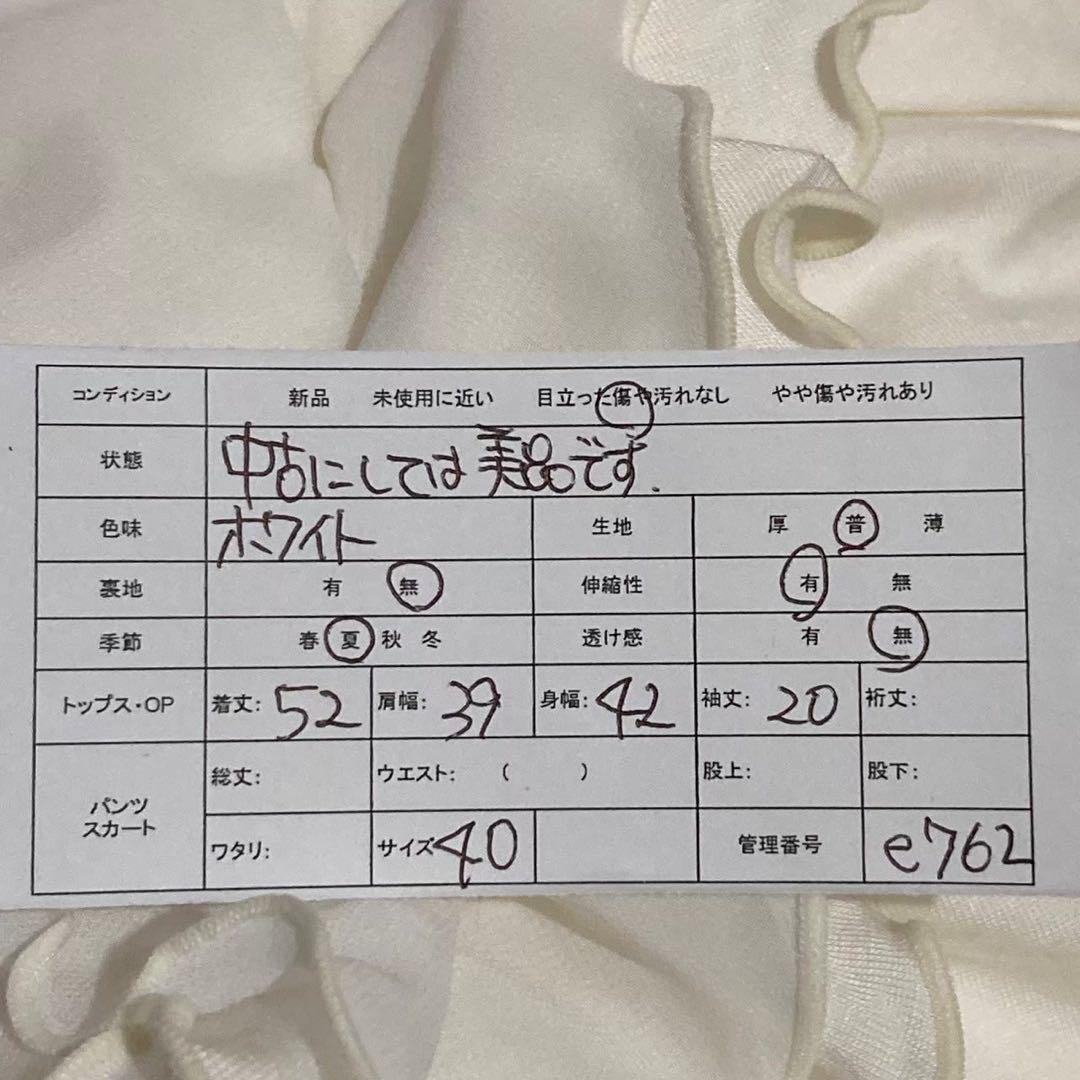 コンディション 新品 未使用に近い 目立った傷や汚れなし やや傷や汚れあり
状態 中古にしては美品です.
色味 ホワイト 生地 厚 普 薄
裏地 有 無 伸縮性 有 無
季節 春 夏 秋 冬 透け感 有 無
トップス・OP 着丈: 52 肩幅: 39 身幅: 42 袖丈: 20 裄丈:
パンツ スカート 総丈: ウエスト: ( ) 股上: 股下:
ワタリ: サイズ 40 管理番号 e762